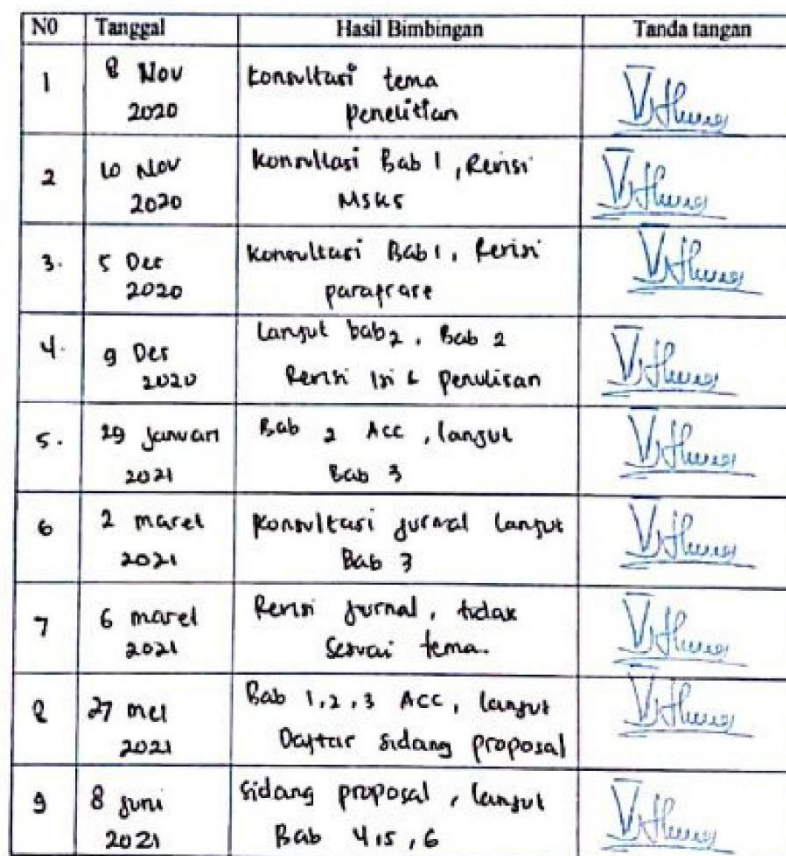 N0 Tanggal Hasil Bimbingan Tanda tangan
1 8 Nov konsultasi tema
2020 penelitian
2 10 Nov konsultasi Bab 1, Revisi
2020 MSKS
3. 5 Des konsultasi Bab 1, Revisi
2020 parafrase
4. 9 Des Lanjut bab 2, Bab 2
2020 Revisi isi & penulisan
5. 29 Januari Bab 2 Acc, lanjut
2021 Bab 3
6 2 maret konsultasi jurnal lanjut
2021 Bab 3
7 6 maret Revisi jurnal, tidak
2021 sesuai tema.
8 27 mei Bab 1, 2, 3 Acc, lanjut
2021 Daftar sidang proposal
9 8 juni sidang proposal, lanjut
2021 Bab 4, 5, 6